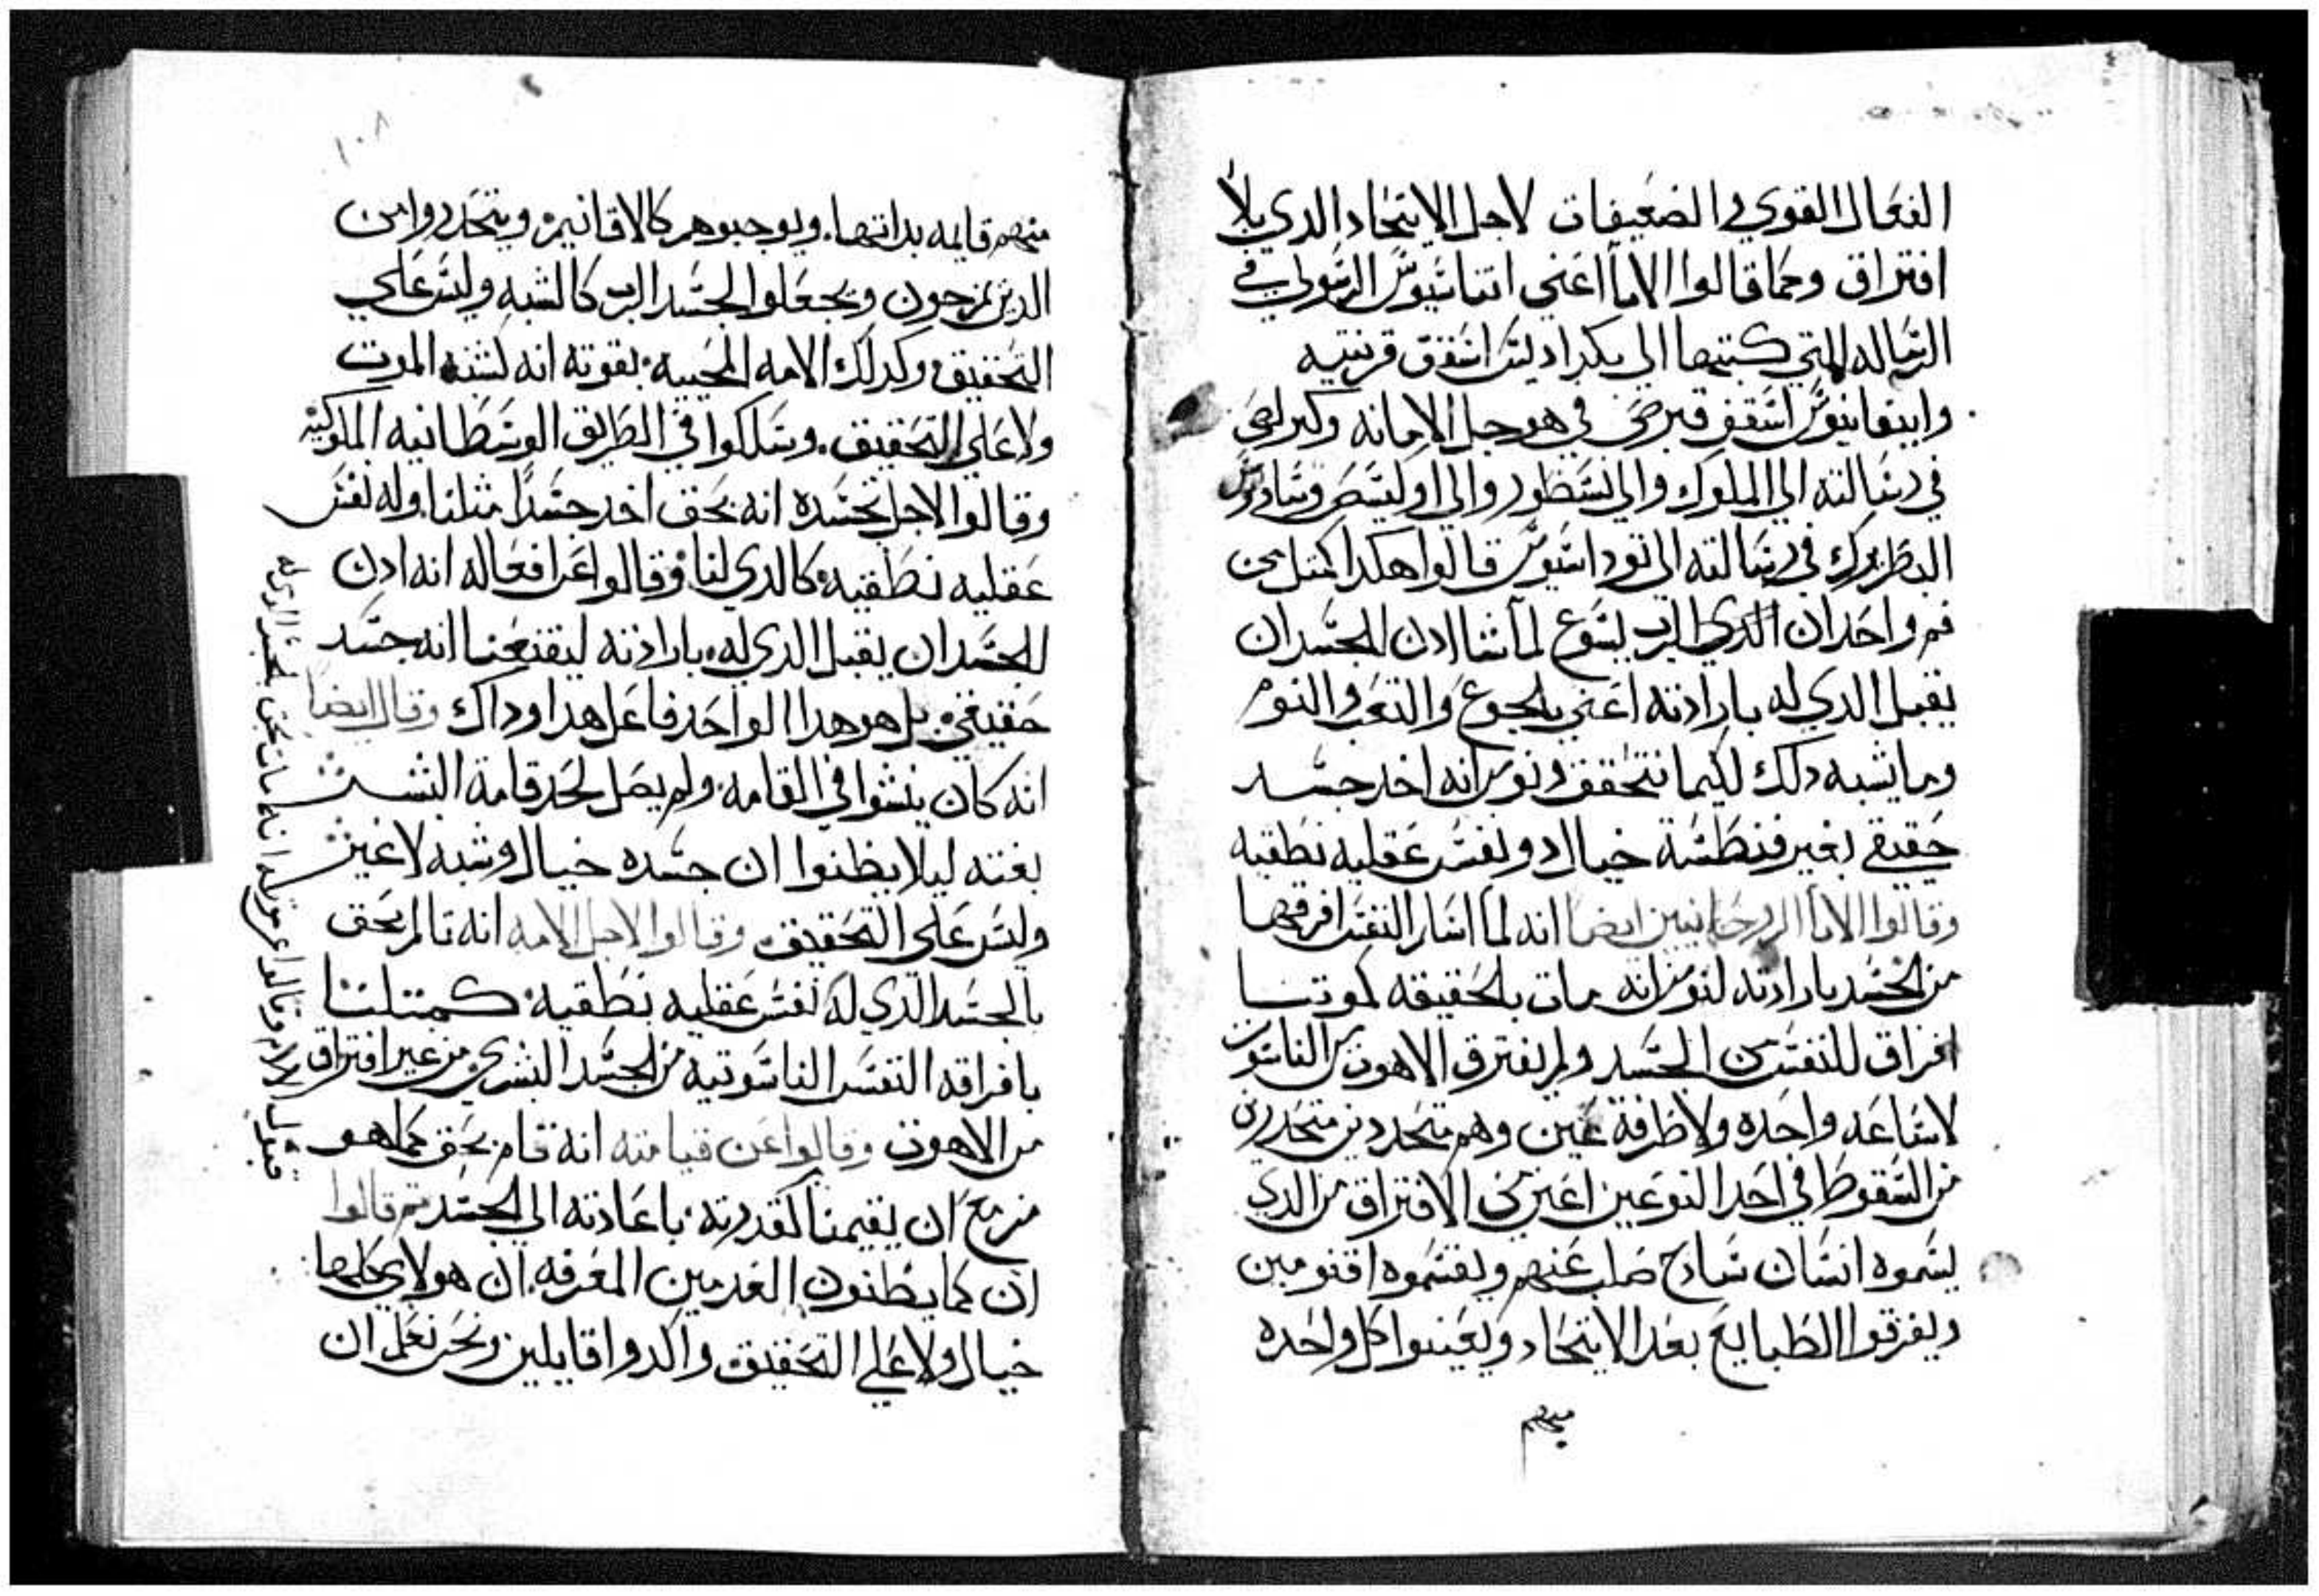 الفعال القوي في الضعيفات لاجل الاتحاد الدي بلا
افتراق وكما قالوا الابا اعني اتناسيوس الرسولي في
الرساله التي كتبها الى اسقف قرنتيه
وابيفانيوس اسقف قبرص في هوجل الامانه وكيرلص
في رسالته الي الملوك والي نسطور والي اوليسص وساورس
البطريرك في رسالته الى توداسيوس قالوا هكدا كمتل من
فم واحد ان الدي الرب يسوع لما شا ادن للجسد ان
يقبل الدي له بارادته اعني بالجوع والتعب والنوم
وما يشبه دلك لكيما نتحقق ونومن انه اخد جسد
حقيقي بغير فنطسة خيال دو نفس عقليه نطقيه
وقالوا الابا الروحانيين ايضا انه لما اشار النفس افرقها
من الجسد بارادته لنومن انه مات بالحقيقه لموتنا
افراق للنفس من الجسد ولم يفترق الاهوت من الناسوت
لا ساعه واحده ولا طرفة عين وهم متحددين متحدرين
من السقوط في احد النوعين اعني من الافتراق من الدي
يسموه انسان سادج صلب عنهم ويقسموه اقنومين
ويفرقوا الطبايع بعد الاتحاد ويعينوا كل واحده
منهم
١٠٨
منهم قايمه بداتها. ويوجبوهم كالاقانيم. ويتحدروا من
الدين يمزجون ويجعلوا الجسد الرب كالشبه وليس علي
التحقيق وكدلك الامه المحييه. بقوته انه لشبه الموت
ولا علي التحقيق. وسلكوا في الطريق الوسطانيه الملوكيه
وقالوا لاجل تجسده انه بحق اخد جسدا مثلنا وله نفس
عقليه نطقيه كالدي لنا وقالوا عن افعاله انه ادن
للجسد ان يقبل الدي له بارادته ليقنعنا انه جسد
حقيقي. بل هو هدا الواحد فاعل هدا وداك وقال ايضا
انه كان ينشوا في القامه. ولم يصل لحد قامة البشر
بغته ليلا يظنوا ان جسده خيال وشبه لا غير
وليس علي التحقيق. وقالوا لاجل الامه انه تالم بحق
بالجسد الدي له نفس عقليه نطقيه. كمتلنا
بافراقه النفس الناسوتيه من الجسد البشري من غير افتراق
من الاهوت وقالوا عن قيامته انه قام بحق كما هو
مزمع ان يقيمنا بقدرته. باعادته الي الجسد تم قالوا
ان كما يظنون العدمين المعرفه. ان هولاي كلها
خيال ولا علي التحقيق. واكدوا قايلين ونحن نعلم ان
قبول الالام وقالوا عن موته انه مات بحق بالجسد الدي له